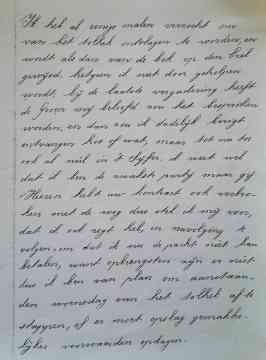 Ik heb al eenige malen verzocht om
van het tolhek ontslagen te worden, en
wordt als dan van de bok op den ezel
gewezen, hetgeen ik niet door geholpen
wordt, bij de laatste vergadering heeft
de Heeren nog beloofd om het bespreken
worden, en dan zou ik dadelijk berigt
ontvangen hoe of wat, maar tot nu toe
ook al niet in 't cijfer, ik weet wel
dat ik ben de zwakste partij maar gij
Heeren hebt uw kontract ook verbro-
ken met de weg dus stel ik mij voor,
dat ik ook regt heb, in navolging te
volgen, om dat ik nu de pacht niet kan
betalen, want ophangsten zijn er niet
dus ik ben van plan om aanstaan-
den woensdag van het tolhek af te
stappen, of er moet opslag gemakke-
lijker voorwaarden opdagen.